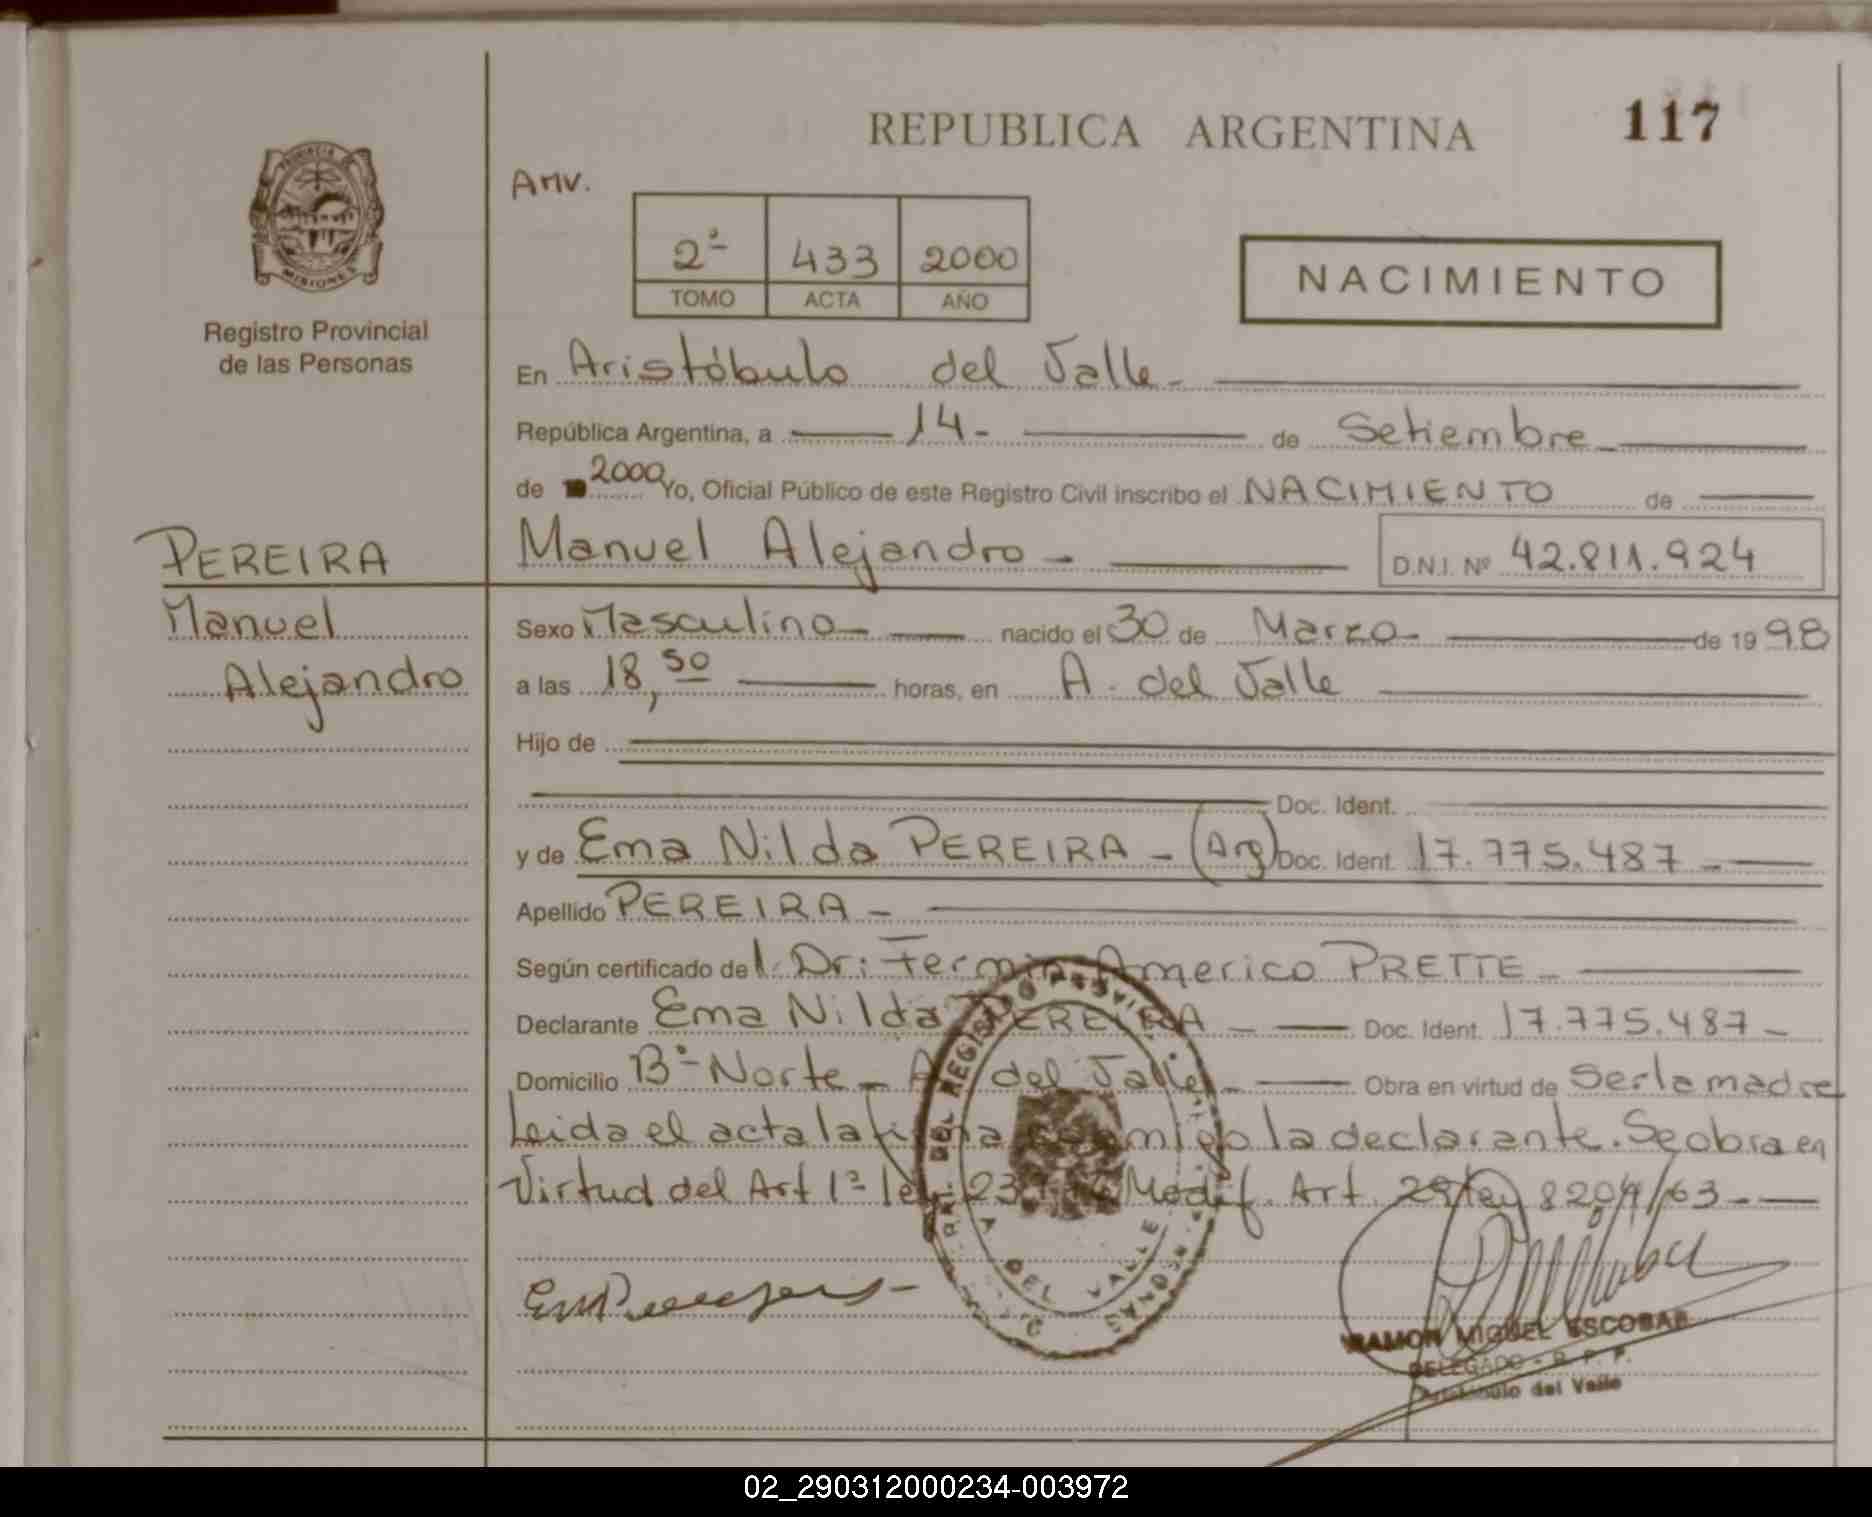 REPUBLICA ARGENTINA
117
PROVINCIA DE
MISIONES
Registro Provincial
de las Personas
AMV.
2ª 433 2000
TOMO ACTA AÑO
NACIMIENTO
En Aristóbulo del Valle-
República Argentina, a 14- de Setiembre
de 2000 Yo, Oficial Público de este Registro Civil inscribo el NACIMIENTO de
PEREIRA
Manuel Alejandro - D.N.I. Nº 42.811.924
Manuel
Alejandro
Sexo Masculino nacido el 30 de Marzo de 1998
a las 18,50 horas, en A. del Valle
Hijo de
Doc. Ident.
y de Ema Nilda PEREIRA - (Arg) Doc. Ident. 17.775.487 -
Apellido PEREIRA -
Según certificado del Dr: Fermin Americo PRETTE -
Declarante Ema Nilda PEREIRA - Doc. Ident. 17.775.487 -
Domicilio Bº Norte - A. del Valle - Obra en virtud de Ser la madre
Leida el acta la firma conmigo la declarante. Se obra en
Virtud del Art 1º ley 23 Modif. Art. 29 ley 8204/63 -
DEL REGISTRO
A DEL VALLE
RAMON MIGUEL ESCOBAR
DELEGADO - R. P. P.
Aristóbulo del Valle
02_290312000234-003972